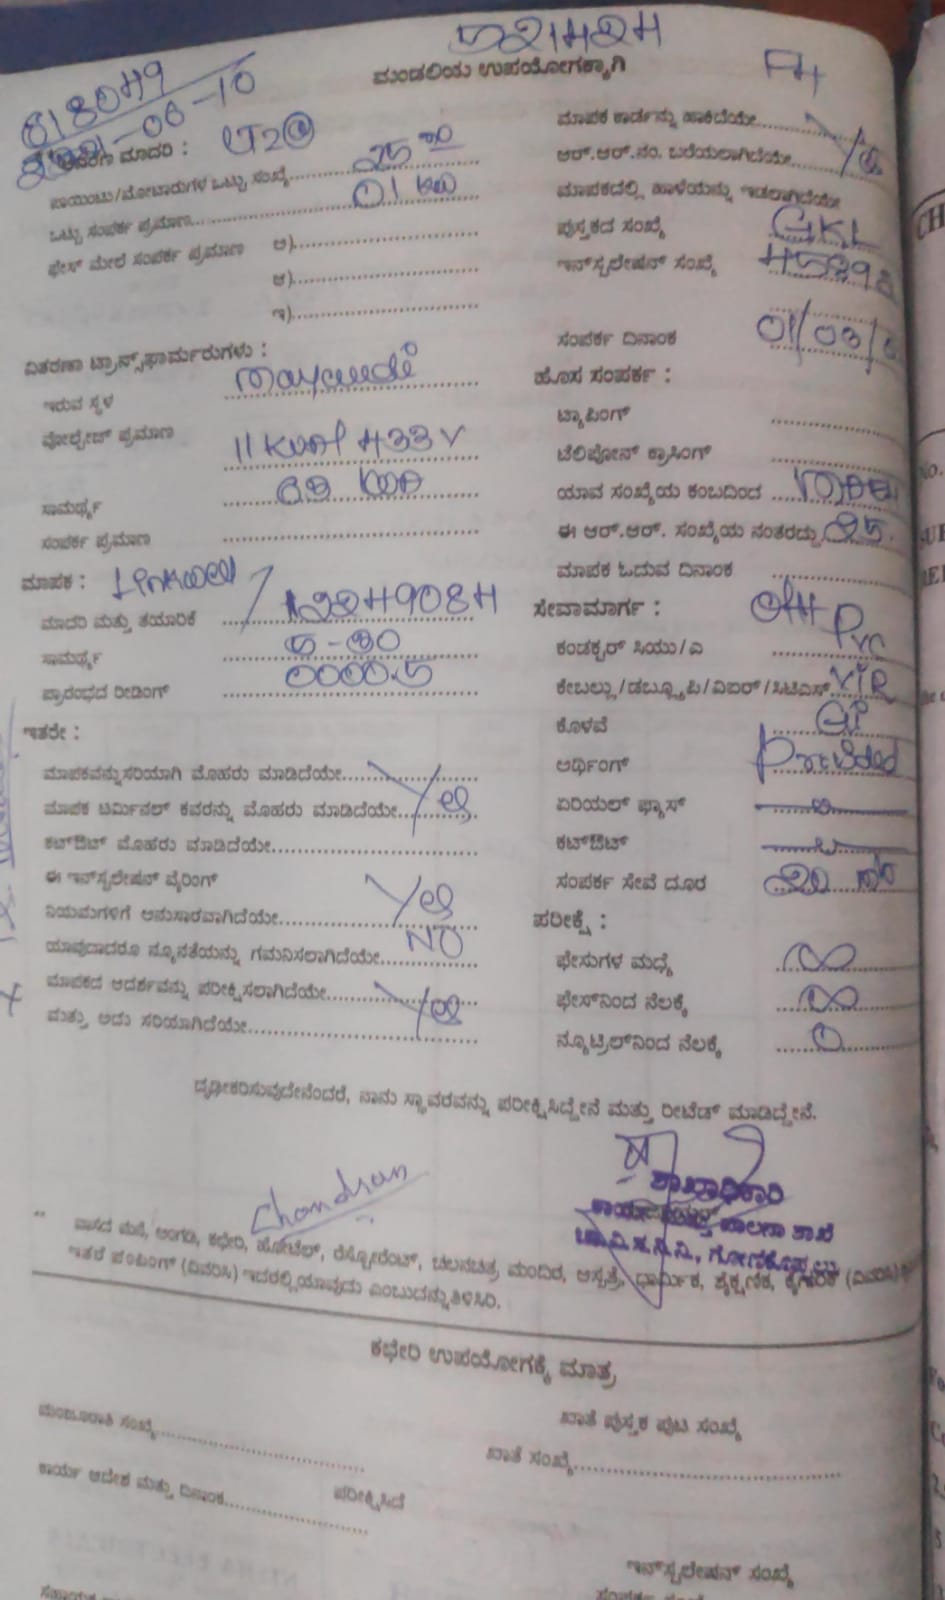 521424
ಮಂಡಲಿಯ ಉಪಯೋಗಕ್ಕಾಗಿ
618049
F4
2021-06-10
ಮಾದರಿ : LT2@
ಪಾಯಿಂಟು/ಮೋಟಾರುಗಳ ಒಟ್ಟು ಸಂಖ್ಯೆ
ಒಟ್ಟು ಸಂಪರ್ಕ ಪ್ರಮಾಣ 01 KW
ಫೇಸ್ ಮೇಲೆ ಸಂಪರ್ಕ ಪ್ರಮಾಣ ಅ)
ಆ)
ಇ)
ವಿತರಣಾ ಟ್ರಾನ್ಸ್‌ಫಾರ್ಮರುಗಳು :
ಇರುವ ಸ್ಥಳ
ವೋಲ್ಟೇಜ್ ಪ್ರಮಾಣ 433V
ಸಾಮರ್ಥ್ಯ
ಸಂಪರ್ಕ ಪ್ರಮಾಣ
ಮಾಪಕ :
ಮಾದರಿ ಮತ್ತು ತಯಾರಿಕೆ
ಸಾಮರ್ಥ್ಯ 5-30
ಪ್ರಾರಂಭದ ರೀಡಿಂಗ್ 0000.5
ಇತರೇ :
ಮಾಪಕವನ್ನುಸರಿಯಾಗಿ ಮೊಹರು ಮಾಡಿದೆಯೇ
ಮಾಪಕ ಟರ್ಮಿನಲ್ ಕವರನ್ನು ಮೊಹರು ಮಾಡಿದೆಯೇ Yes
ಕಟ್‌ಔಟ್ ಮೊಹರು ಮಾಡಿದೆಯೇ
ಈ ಇನ್‌ಸ್ಟಲೇಷನ್ ವೈರಿಂಗ್
ನಿಯಮಗಳಿಗೆ ಅನುಸಾರವಾಗಿದೆಯೇ Yes
ಯಾವುದಾದರೂ ನ್ಯೂನತೆಯನ್ನು ಗಮನಿಸಲಾಗಿದೆಯೇ NO
ಮಾಪಕದ ಆದರ್ಶವನ್ನು ಪರೀಕ್ಷಿಸಲಾಗಿದೆಯೇ Yes
ಮತ್ತು ಅದು ಸರಿಯಾಗಿದೆಯೇ
ಮಾಪಕ ಕಾರ್ಡನ್ನು ಹಾಕಿದೆಯೇ
ಆರ್.ಆರ್.ನಂ. ಬರೆಯಲಾಗಿದೆಯೇ
ಮಾಪಕದಲ್ಲಿ ಹಾಳೆಯನ್ನು ಇಡಲಾಗಿದೆಯೇ
ಪುಸ್ತಕದ ಸಂಖ್ಯೆ GKL
ಇನ್‌ಸ್ಟಲೇಷನ್ ಸಂಖ್ಯೆ
ಸಂಪರ್ಕ ದಿನಾಂಕ 01/03/
ಹೊಸ ಸಂಪರ್ಕ :
ಟ್ಯಾಪಿಂಗ್
ಟೆಲಿಫೋನ್ ಕ್ರಾಸಿಂಗ್
ಯಾವ ಸಂಖ್ಯೆಯ ಕಂಬದಿಂದ
ಈ ಆರ್.ಆರ್. ಸಂಖ್ಯೆಯ ನಂತರದ್ದು 25.
ಮಾಪಕ ಓದುವ ದಿನಾಂಕ
ಸೇವಾಮಾರ್ಗ : OH
ಕಂಡಕ್ಟರ್ ಸಿಯು/ಎ PVC
ಕೇಬಲ್ಲು/ಡಬ್ಲ್ಯೂಪಿ/ವಿಐಆರ್/ಸಿಟಿಎಸ್ VIR
ಕೊಳವೆ GI
ಅರ್ಥಿಂಗ್ Provided
ಏರಿಯಲ್ ಫ್ಯೂಸ್
ಕಟ್‌ಔಟ್
ಸಂಪರ್ಕ ಸೇವೆ ದೂರ
ಪರೀಕ್ಷೆ :
ಫೇಸುಗಳ ಮಧ್ಯೆ ∞
ಫೇಸ್‌ನಿಂದ ನೆಲಕ್ಕೆ ∞
ನ್ಯೂಟ್ರಲ್‌ನಿಂದ ನೆಲಕ್ಕೆ 0
ದೃಢೀಕರಿಸುವುದೇನೆಂದರೆ, ನಾನು ಸ್ಥಾವರವನ್ನು ಪರೀಕ್ಷಿಸಿದ್ದೇನೆ ಮತ್ತು ರೀಟೆಡ್ ಮಾಡಿದ್ದೇನೆ.
Chandran
ಶಾಖಾಧಿಕಾರಿ
ಪಾಲನಾ ಶಾಖೆ
ಚಾ.ವಿ.ಸ.ನಿ.ನಿ., ಗೋಣಿಕೊಪ್ಪಲು
** ವಾಸದ ಮನೆ, ಅಂಗಡಿ, ಕಛೇರಿ, ಹೋಟೆಲ್, ರೆಸ್ಟೋರೆಂಟ್, ಚಲನಚಿತ್ರ ಮಂದಿರ, ಆಸ್ಪತ್ರೆ, ಧಾರ್ಮಿಕ, ಶೈಕ್ಷಣಿಕ, ಕೈಗಾರಿಕೆ (ವಿವರಿಸಿ)
ಇತರೆ ಪಂಪಿಂಗ್ (ವಿವರಿಸಿ) ಇದರಲ್ಲಿಯಾವುದು ಎಂಬುದನ್ನುತಿಳಿಸಿರಿ.
ಕಛೇರಿ ಉಪಯೋಗಕ್ಕೆ ಮಾತ್ರ
ಮಂಜೂರಾತಿ ಸಂಖ್ಯೆ
ಖಾತೆ ಪುಸ್ತಕ ಪುಟ ಸಂಖ್ಯೆ
ಖಾತೆ ಸಂಖ್ಯೆ
ಕಾರ್ಯ ಆದೇಶ ಮತ್ತು ದಿನಾಂಕ
ಪರೀಕ್ಷಿಸಿದೆ
ಇನ್‌ಸ್ಟಲೇಷನ್ ಸಂಖ್ಯೆ